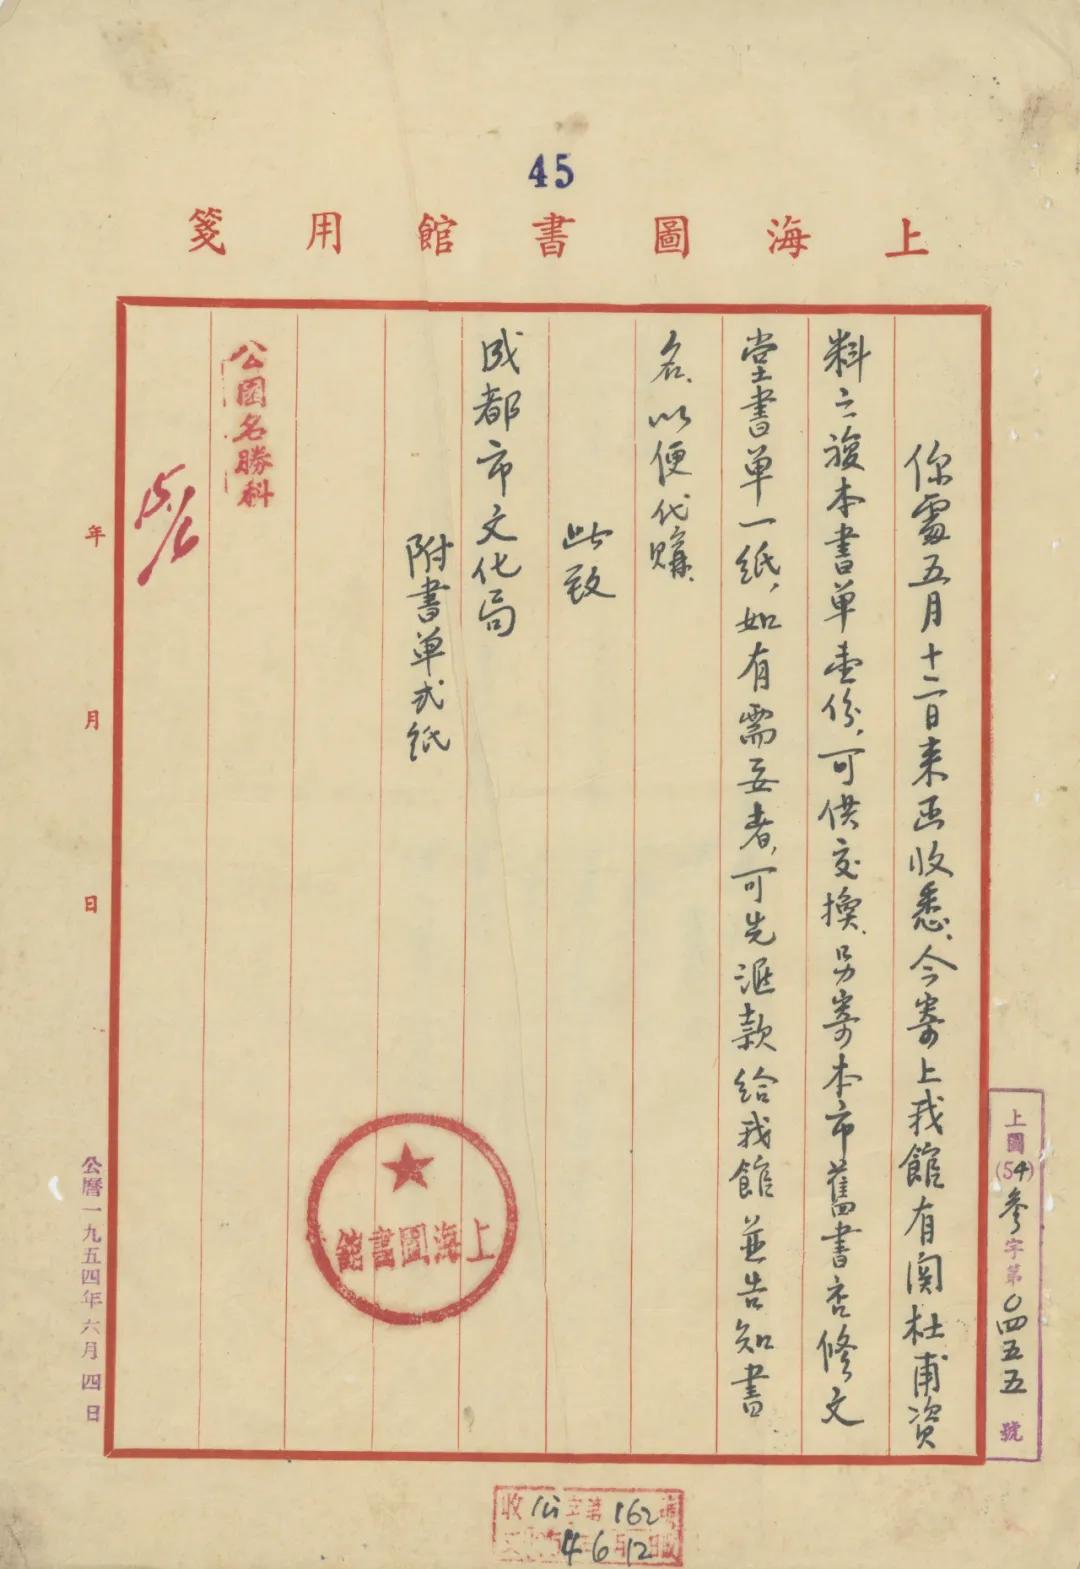 45
上海圖書館用箋
上圖(54)参字第〇四五五號
你處五月十二日来函收悉、今寄上我館有関杜甫资
料之複本書单壹份,可供交換.另寄本市舊書店修文
堂書单一紙,如有需要者,可先滙款給我館並告知書
名.以便代購.
此致
成都市文化局
附書单弍纸
上海圖書館
公園名勝科
年月日
公曆一九五四年六月四日
收 公字第162號
4 6 12